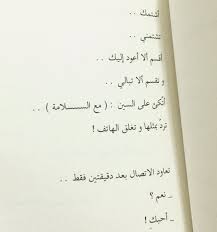 أشتمك . .
تشتمني . .
أقسم ألا أعود إليك . .
و تقسم ألا تبالي . .
أتكئ على السين : ( مع الســـلامة ) . .
تردُّ بمثلها و تغلق الهاتف !
تعاود الاتصال بعد دقيقتين فقط . .
_ نعم ؟
_ أحبكِ !